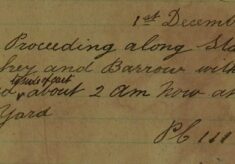 1st Decem
Proceeding along Sta
key and Barrow with
about 2 am now at
Yard
PC 111